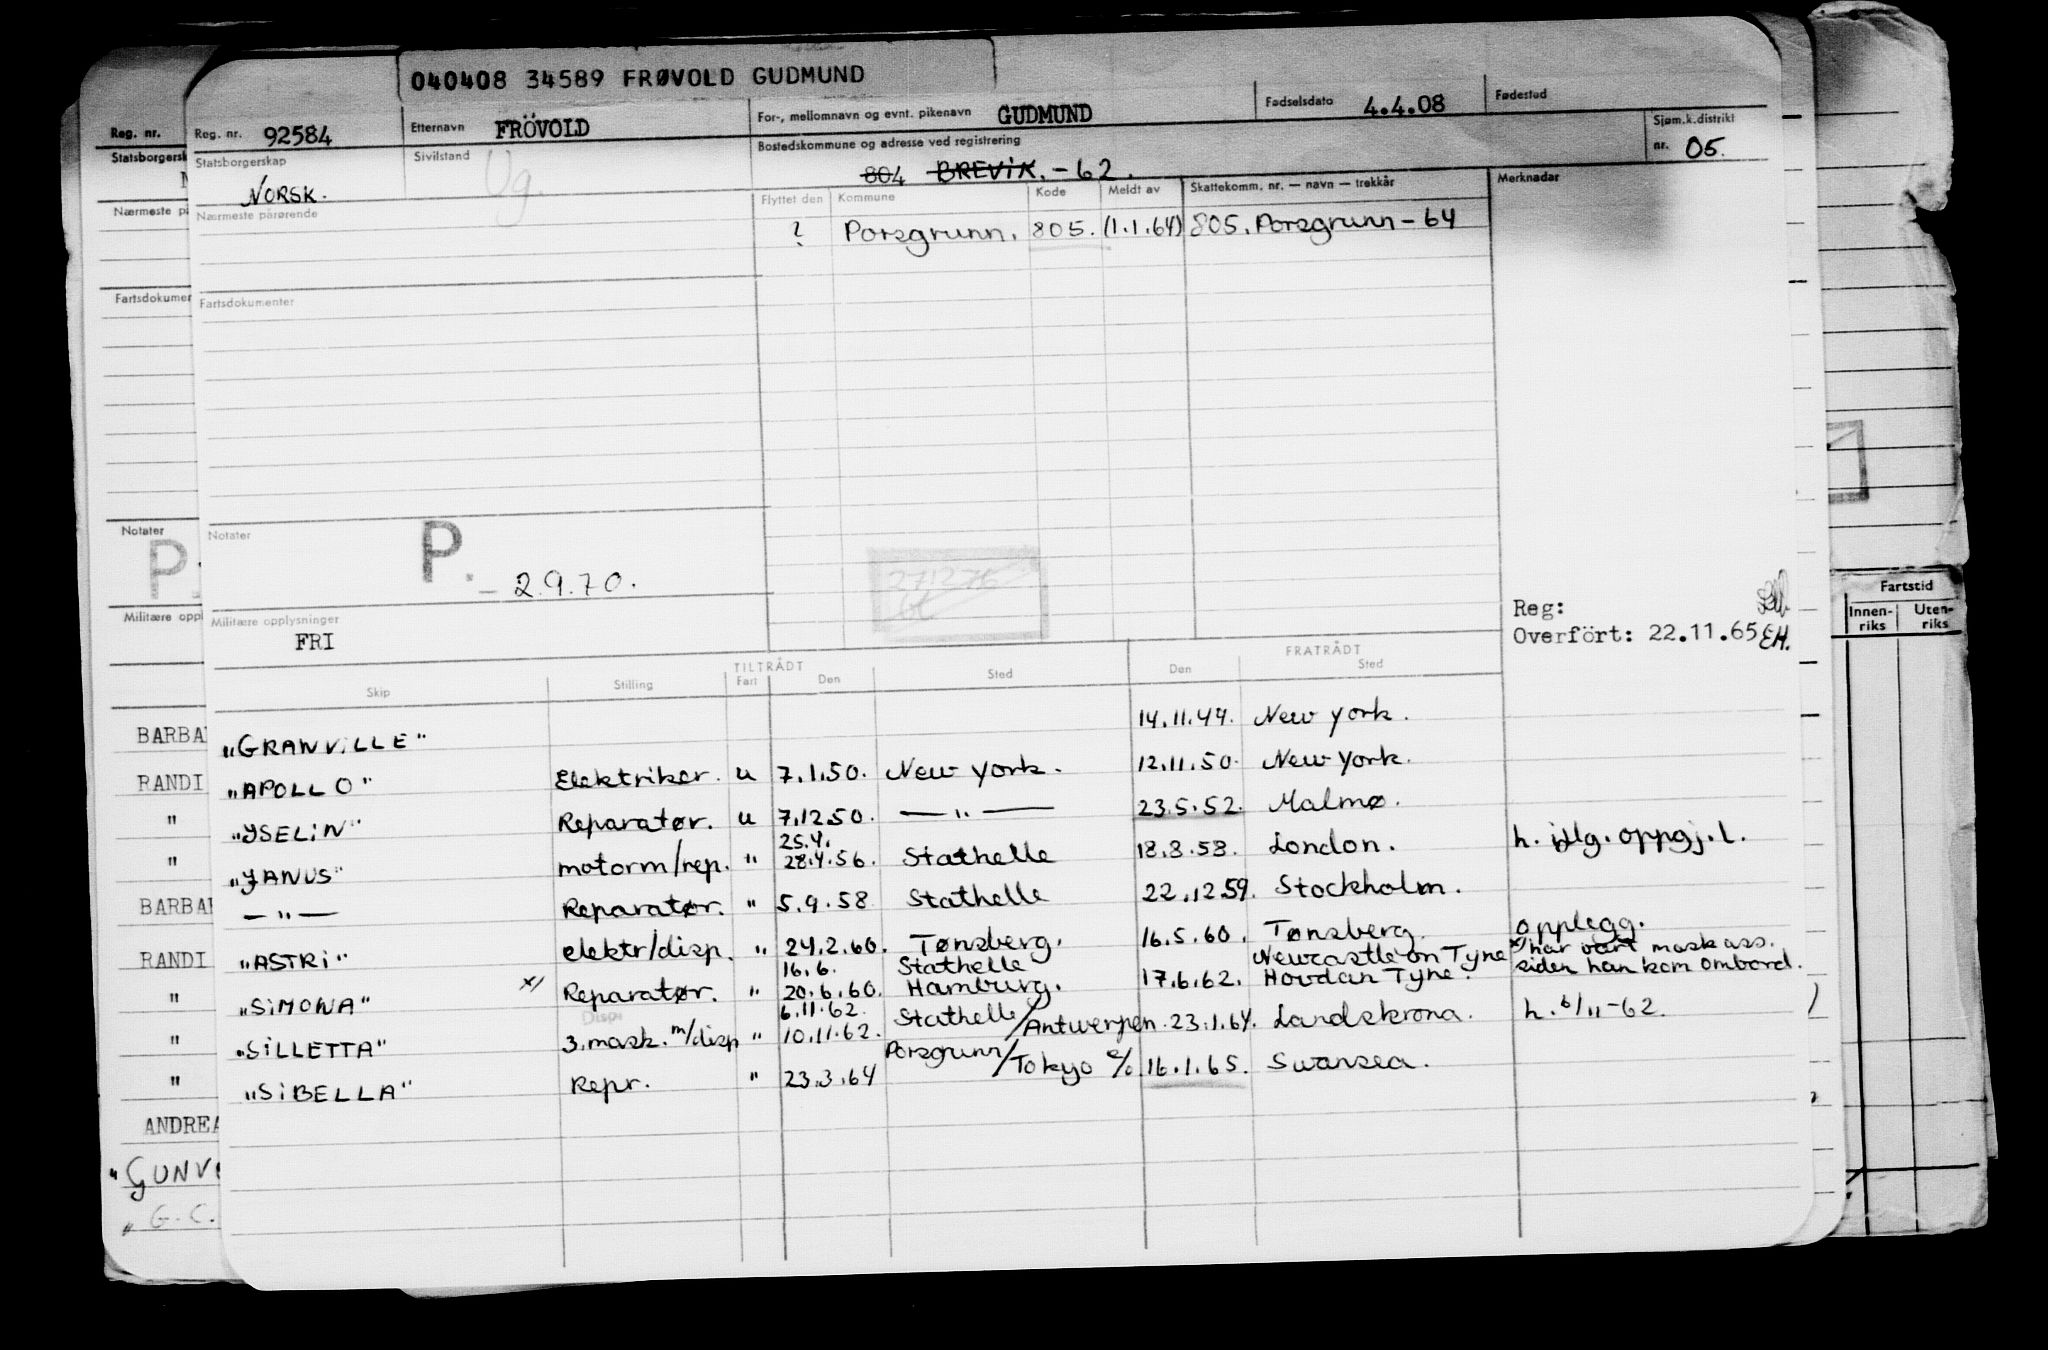 040408 34589 FRØVOLD GUDMUND
Reg. nr.
Reg. nr. 92584 Etternavn FRÖVOLD For-, mellomnavn og evnt. pikenavn GUDMUND Fødselsdato 4.4.08 Fødested
Statsborgersk
Statsborgerskap NORSK. Sivilstand Ug. Bostedskommune og adresse ved registrering 804 BREVIK. - 62. Sjøm.k.distrikt nr. 05.
Nærmeste på
Nærmeste pårørende Flyttet den Kommune Kode Meldt av Skattekomm. nr. — navn — trekkår Merknader
? Porsgrunn. 805. (1.1.64) 805. Porsgrunn - 64
Fartsdokumen
Fartsdokumenter
Notater
Notater
P.
P. - 2.9.70.
271276
Militære oppl
Militære opplysninger
FRI
Reg:
Overfört: 22.11.65 EH.
Fartstid
Innen-riks Uten-riks
TILTRÅDT FRATRÅDT
Skip Stilling Fart Den Sted Den Sted
BARBA
"GRANVILLE" 14.11.44. New York.
RANDI
"APOLLO" Elektriker. u 7.1.50. New York. 12.11.50. New York.
"
"YSELIN" Reparatør. u 7.12.50. — " — 23.5.52. Malmø.
25.4.
"
"JANUS" motorm/rep. " 28.4.56. Stathelle 18.8.58. London. h. oppgj. l.
BARBA
— " — Reparatør. " 5.9.58 Stathelle 22.12.59. Stockholm.
RANDI
"ASTRI" elektr/disp. " 24.2.60. Tønsberg. 16.5.60. Tønsberg. opplegg.
16.6. Stathelle Newcastle on Tyne x/ har vært mask ass.
"
"SIMONA" x/ Reparatør. " 20.6.60. Hamburg. 17.6.62. siden han kom ombord.
6.11.62.
"
"SILLETTA" 3.mask. m/disp " 10.11.62. Stathelle/Antwerpen. 23.1.64. Landskrona. h. 6/11-62.
"
"SIBELLA" Repr. " 23.3.64 Porsgrunn/Tokyo 16.1.65. Swansea.
ANDREA
"GUNV
"G.C.